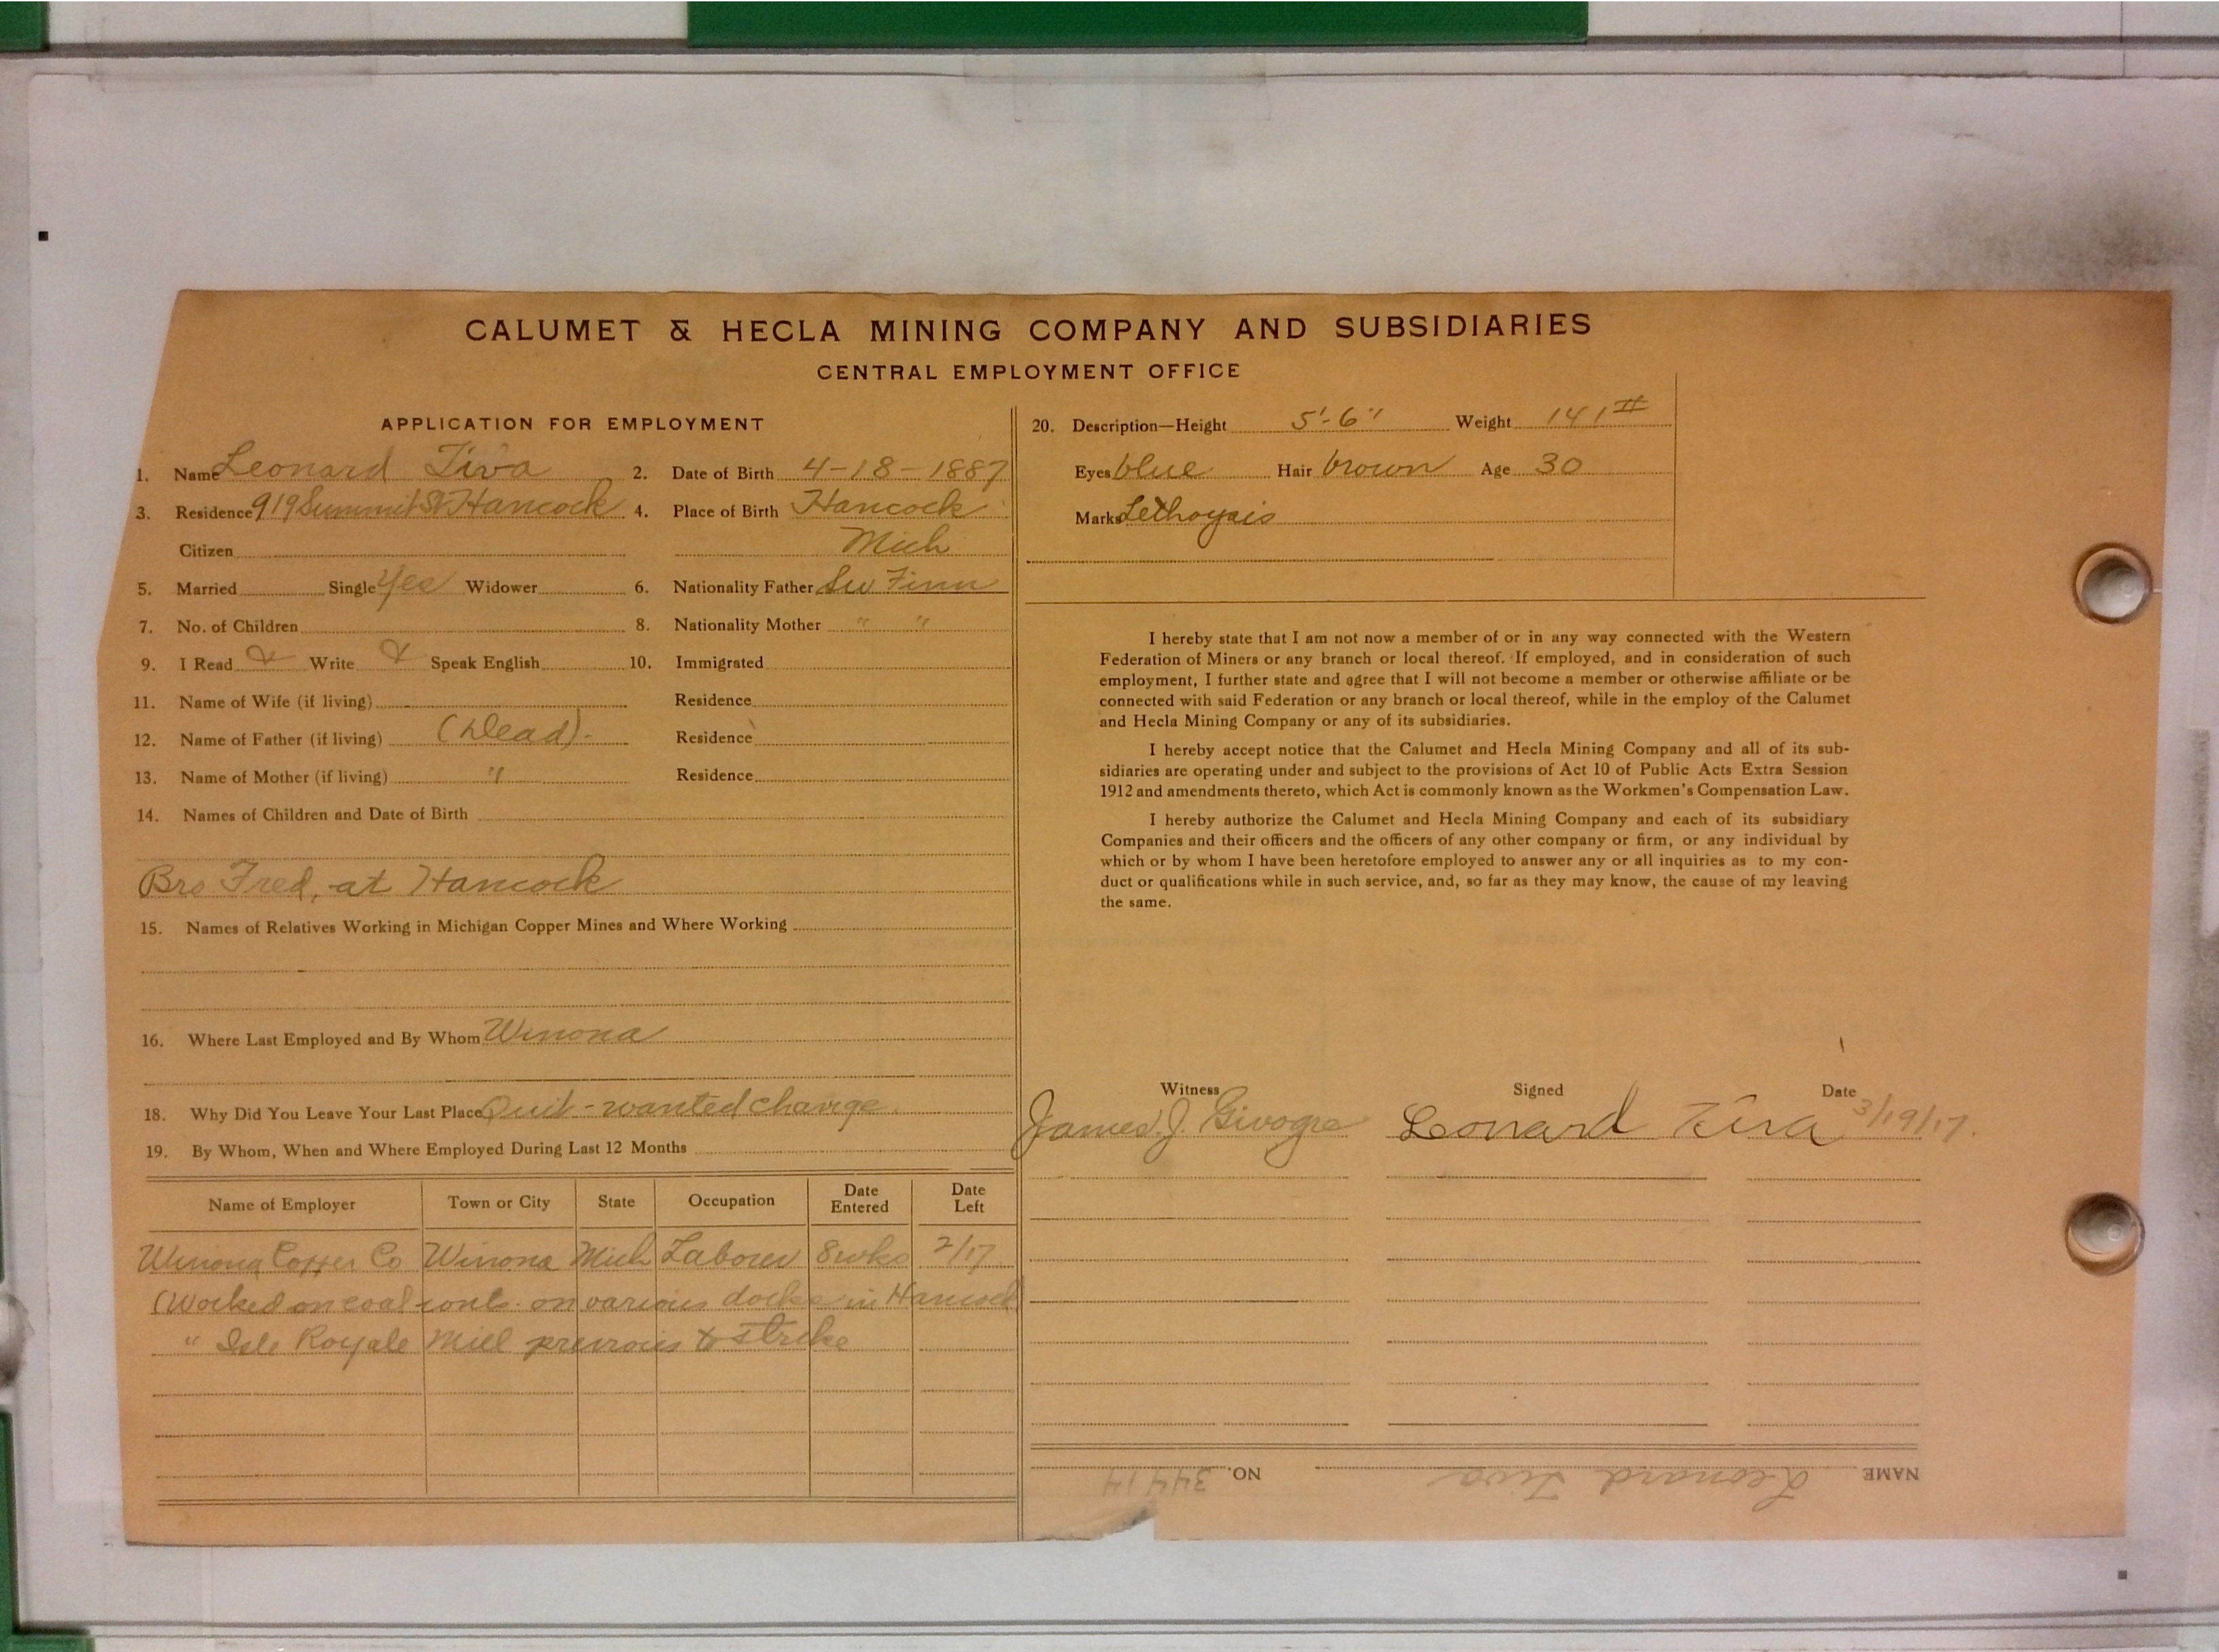 CALUMET & HECLA MINING COMPANY AND SUBSIDIARIES
CENTRAL EMPLOYMENT OFFICE
APPLICATION FOR EMPLOYMENT
1. Name Leonard Tiva 2. Date of Birth 4-18-1887
3. Residence 919 Summit St Hancock 4. Place of Birth Hancock
Citizen Mich
5. Married Single Yes Widower 6. Nationality Father Sw Finn
7. No. of Children 8. Nationality Mother " "
9. I Read & Write & Speak English 10. Immigrated
11. Name of Wife (if living) Residence
12. Name of Father (if living) (Dead). Residence
13. Name of Mother (if living) " Residence
14. Names of Children and Date of Birth
Bro Fred, at Hancock
15. Names of Relatives Working in Michigan Copper Mines and Where Working
16. Where Last Employed and By Whom Winona
18. Why Did You Leave Your Last Place Quit - wanted change.
19. By Whom, When and Where Employed During Last 12 Months
Name of Employer Town or City State Occupation Date Entered Date Left
Winona Copper Co Winona Mich Laborer 8 wks 2/17
(Worked on coal on various docks in Hancock
" Isle Royale Mill previous to strike
20. Description—Height 5'-6" Weight 141#
Eyes blue Hair brown Age 30
Marks
I hereby state that I am not now a member of or in any way connected with the Western
Federation of Miners or any branch or local thereof. If employed, and in consideration of such
employment, I further state and agree that I will not become a member or otherwise affiliate or be
connected with said Federation or any branch or local thereof, while in the employ of the Calumet
and Hecla Mining Company or any of its subsidiaries.
I hereby accept notice that the Calumet and Hecla Mining Company and all of its sub-
sidiaries are operating under and subject to the provisions of Act 10 of Public Acts Extra Session
1912 and amendments thereto, which Act is commonly known as the Workmen's Compensation Law.
I hereby authorize the Calumet and Hecla Mining Company and each of its subsidiary
Companies and their officers and the officers of any other company or firm, or any individual by
which or by whom I have been heretofore employed to answer any or all inquiries as to my con-
duct or qualifications while in such service, and, so far as they may know, the cause of my leaving
the same.
Witness Signed Date
James J. Leonard Tiva 3/19/17.
NAME Leonard Tiva NO. 34414